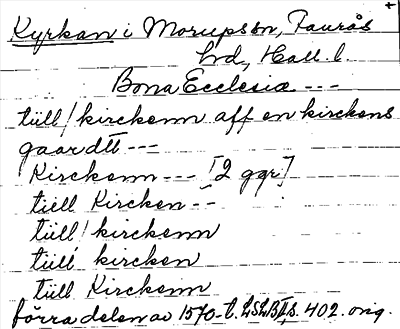 Kyrkan i Morups sn, Faurås
hd, Hall. l.
Bona Ecclesiæ ---
tiill kirckenn aff en kirckens
gaardtt ---
Kirckenn --- [2 ggr]
tiell Kircken --
tiill kirckenn
tiill kircken
tiill Kirckenn
förra delen av 1570-t. 402. orig.